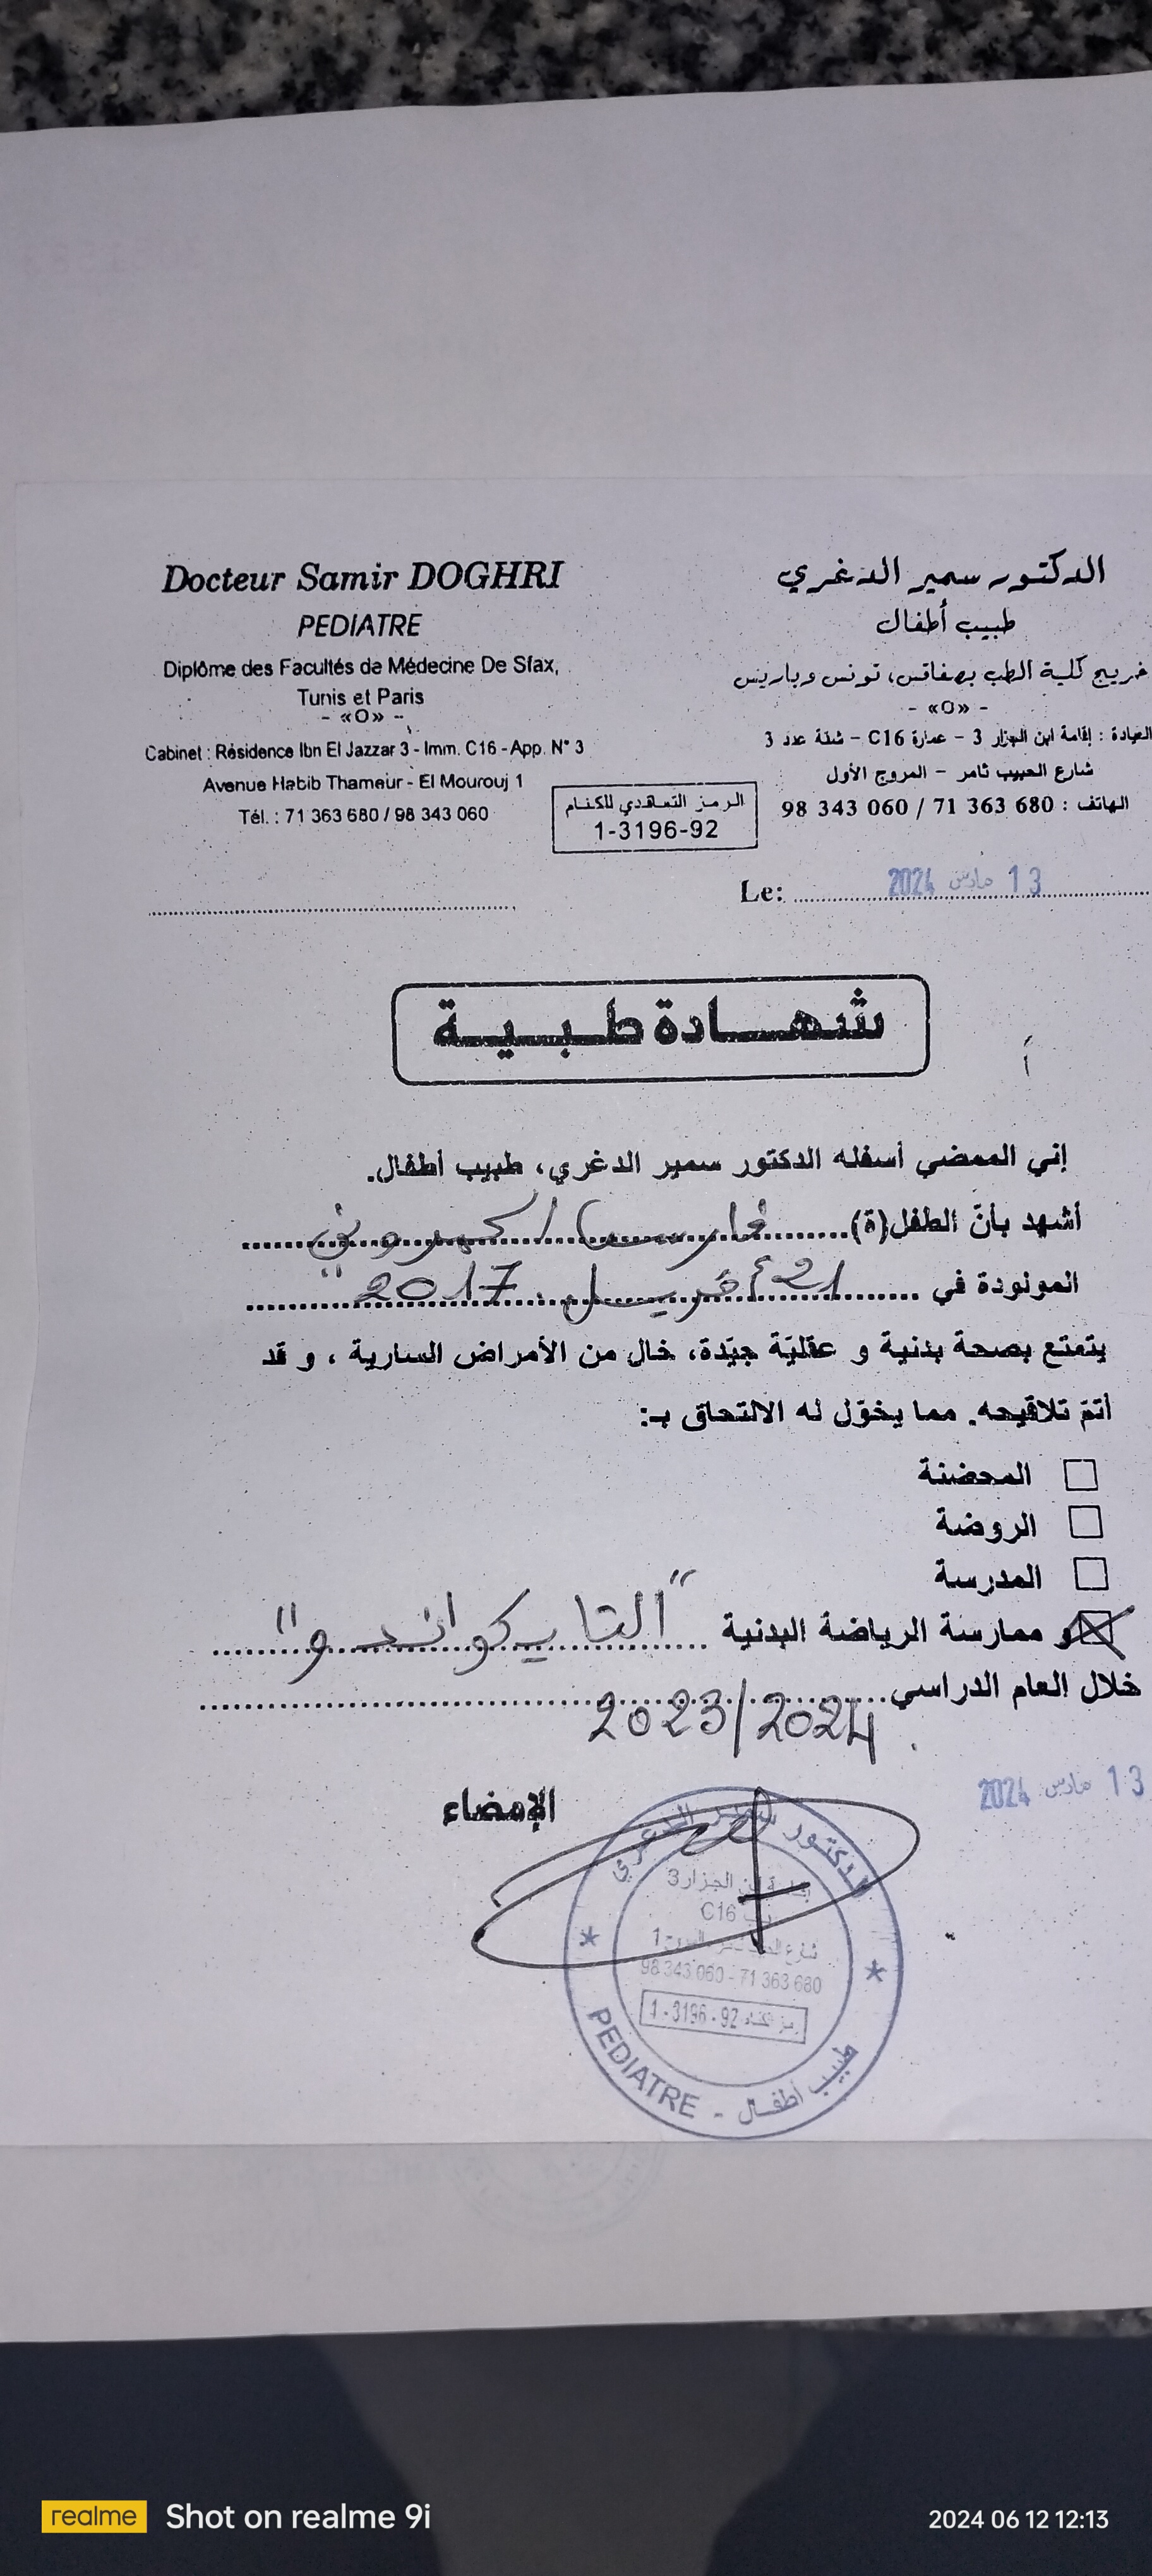 Docteur Samir DOGHRI
PEDIATRE
Diplôme des Facultés de Médecine De Sfax,
Tunis et Paris
- «O» -
Cabinet : Résidence Ibn El Jazzar 3 - Imm. C16 - App. N° 3
Avenue Habib Thameur - El Mourouj 1
Tél. : 71 363 680 / 98 343 060
الدكتور سمير الدغري
طبيب أطفال
خريج كلية الطب بصفاقس، تونس وباريس
- «O» -
العيادة : إقامة ابن الجزار 3 - عمارة C16 - شقة عدد 3
شارع الحبيب ثامر - المروج الأول
الهاتف : 680 363 71 / 060 343 98
الرمز التعهدي للكنام
1-3196-92
Le: 13 مارس 2024
شهادة طبية
إني الممضي أسفله الدكتور سمير الدغري، طبيب أطفال.
أشهد بأنّ الطفل(ة) فارس
المولودة في 21 أفريل 2017
يتمتع بصحة بدنية و عقليّة جيّدة، خال من الأمراض السارية ، و قد
أتمّ تلاقيحه. مما يخوّل له الالتحاق بـ:
المحضنة
الروضة
المدرسة
و ممارسة الرياضة البدنية "التايكواندو"
خلال العام الدراسي
2023/2024
13 مارس 2024
الإمضاء
الدكتور سمير الدغري
إقامة ابن الجزار 3
C16
98 343 060 - 71 363 680
1 - 3196 - 92
PEDIATRE - طبيب أطفال
realme Shot on realme 9i
2024 06 12 12:13